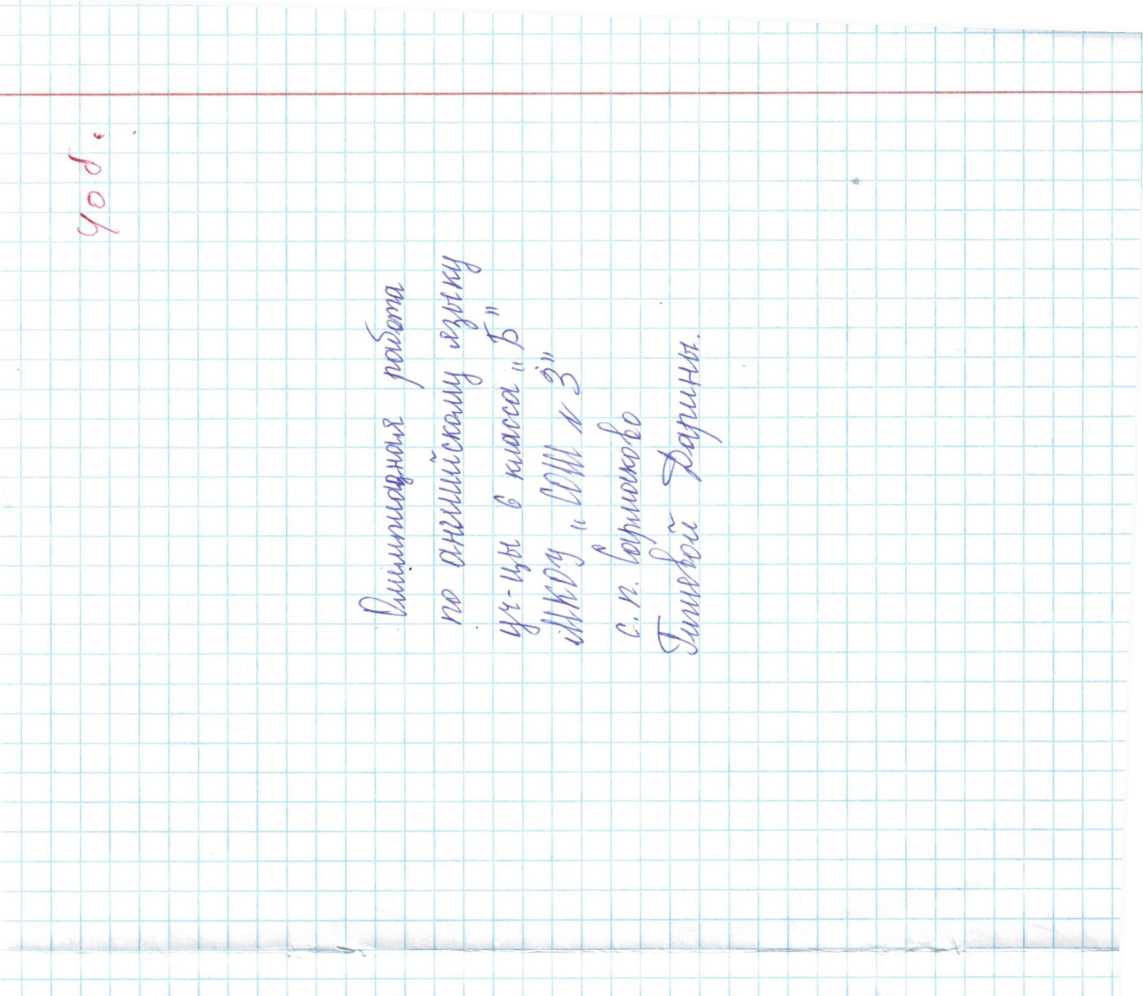 40 б.
Олимпиадная работа
по английскому языку
уч-цы 6 класса „Б"
МКОУ „СОШ № 3"
с. п. Сармаково
Дарины.